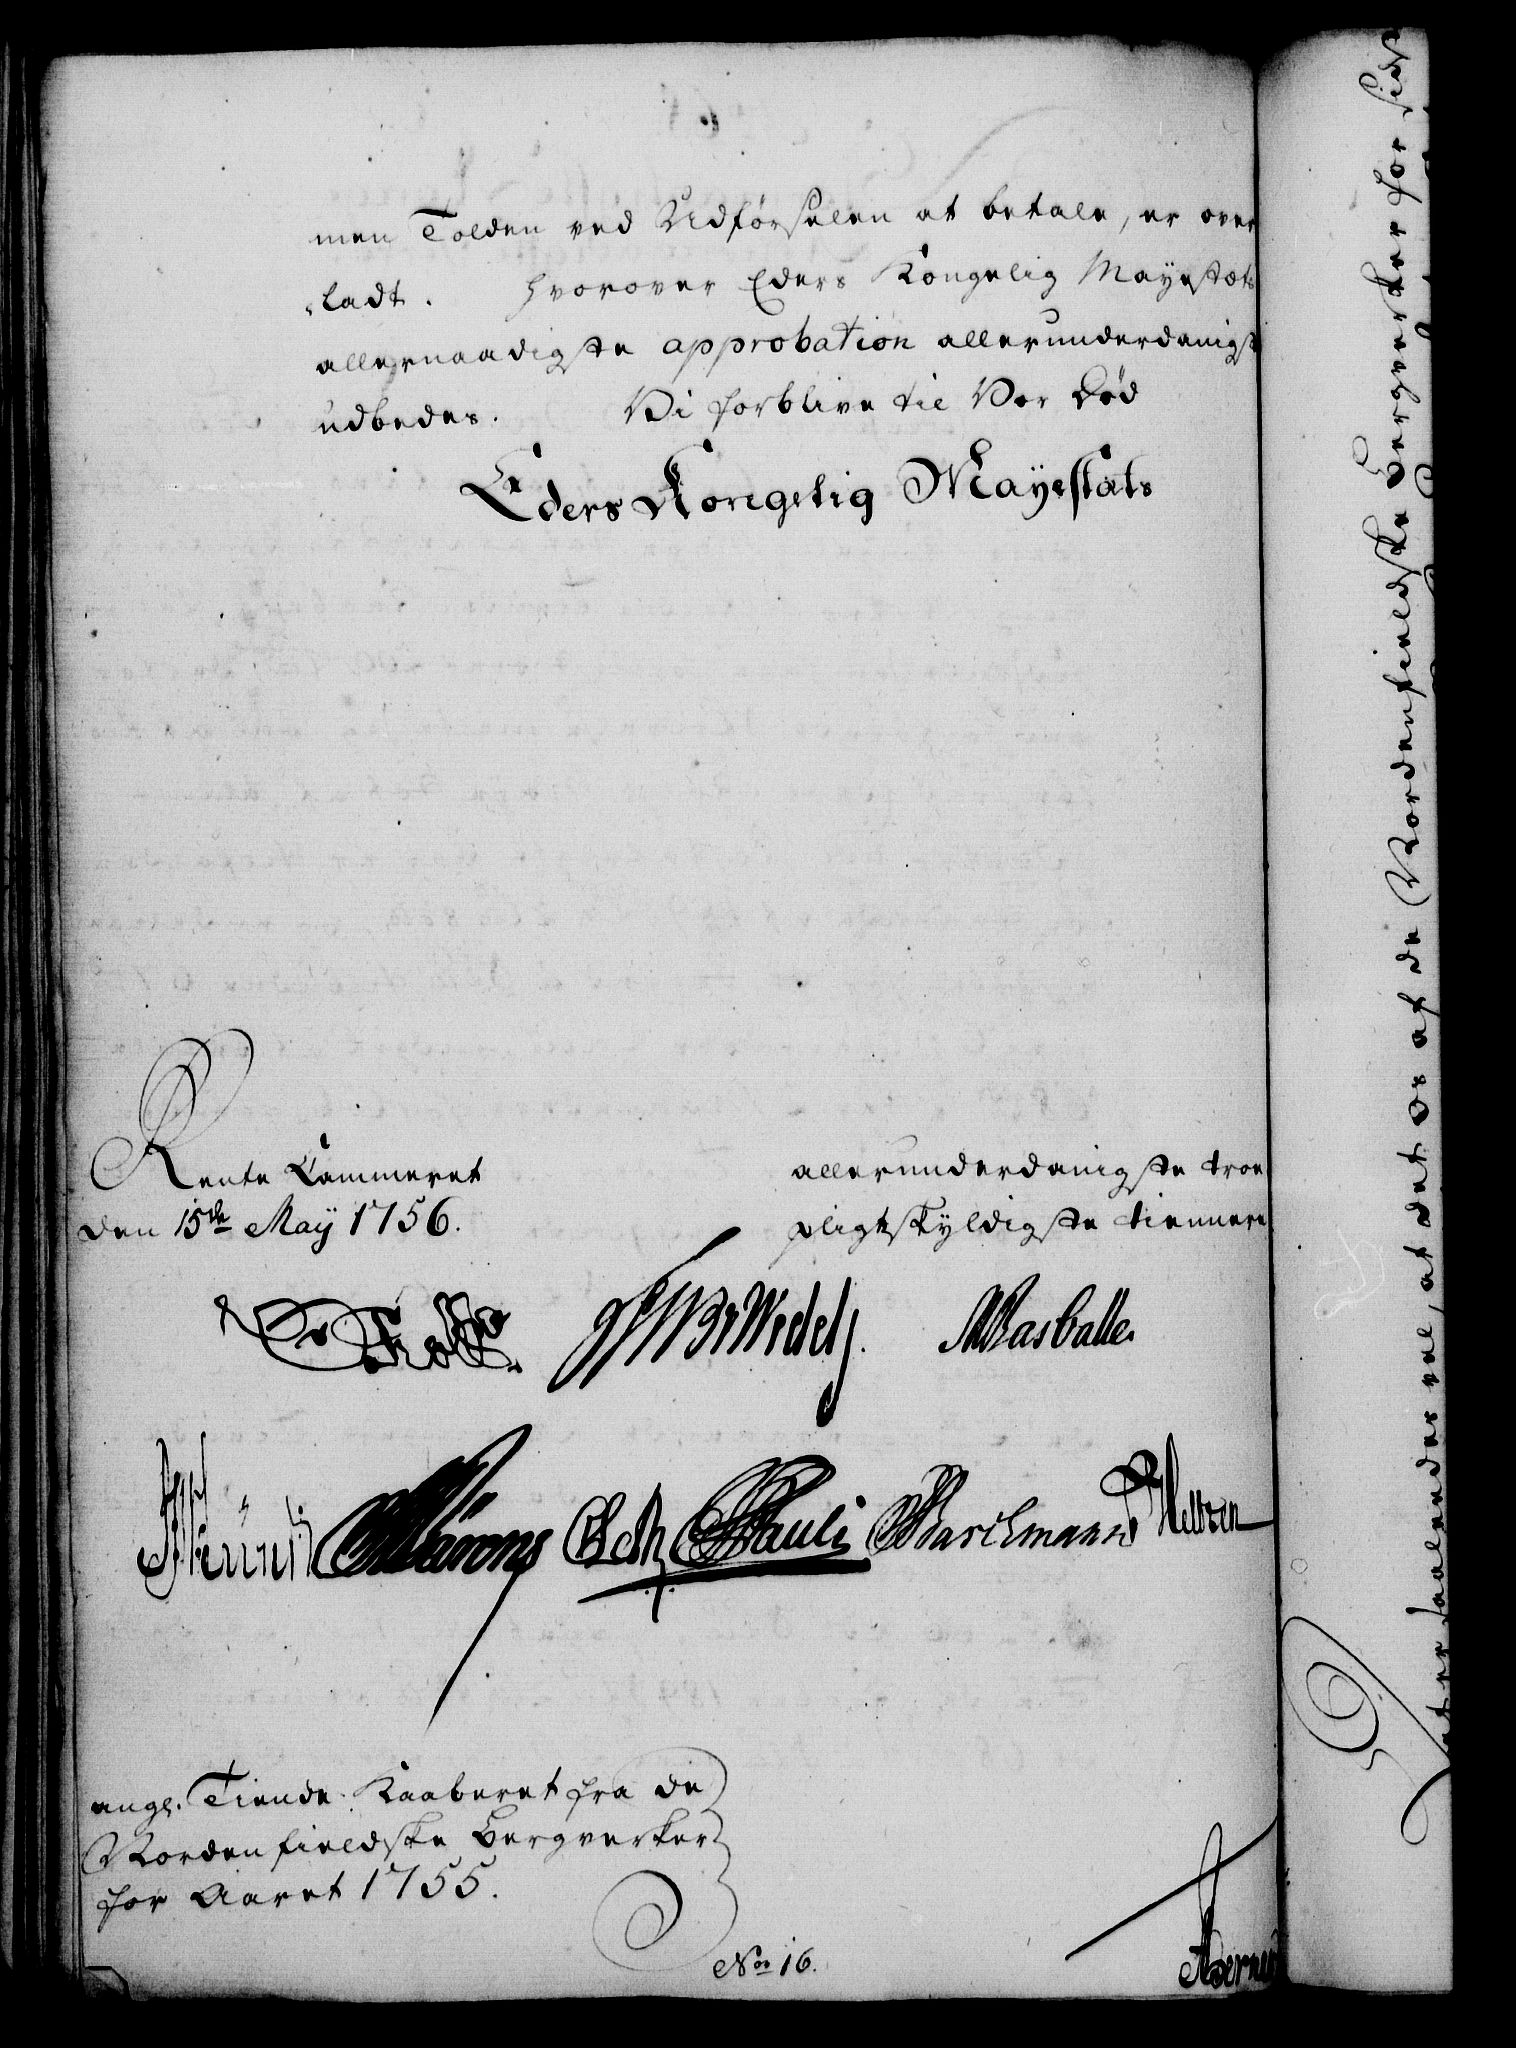 men Tolden ved Udförselen at betale, er over
„ladt. Hvorover Eders Kongelig Mayestæts
allernaadigste approbation allerunderdanigst
udbedes. Vi forblive til Vor Död
Eders Kongelig Mayestæts
Rente Cammeret
den 15de May 1756.
allerunderdanigste troe
pligtskyldigste tiennere
Wedel
Rasballe.
Pauli Barchmann
ang: Tiende Kaaberet fra de
Nordenfieldske Bergverker
for Aaret 1755.
No 16.
saaledes vel, at det os af de Nordenfieldske Bergverker for sidst